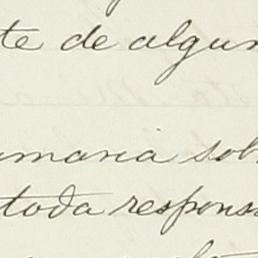 te de algun
umaria sob
toda respons